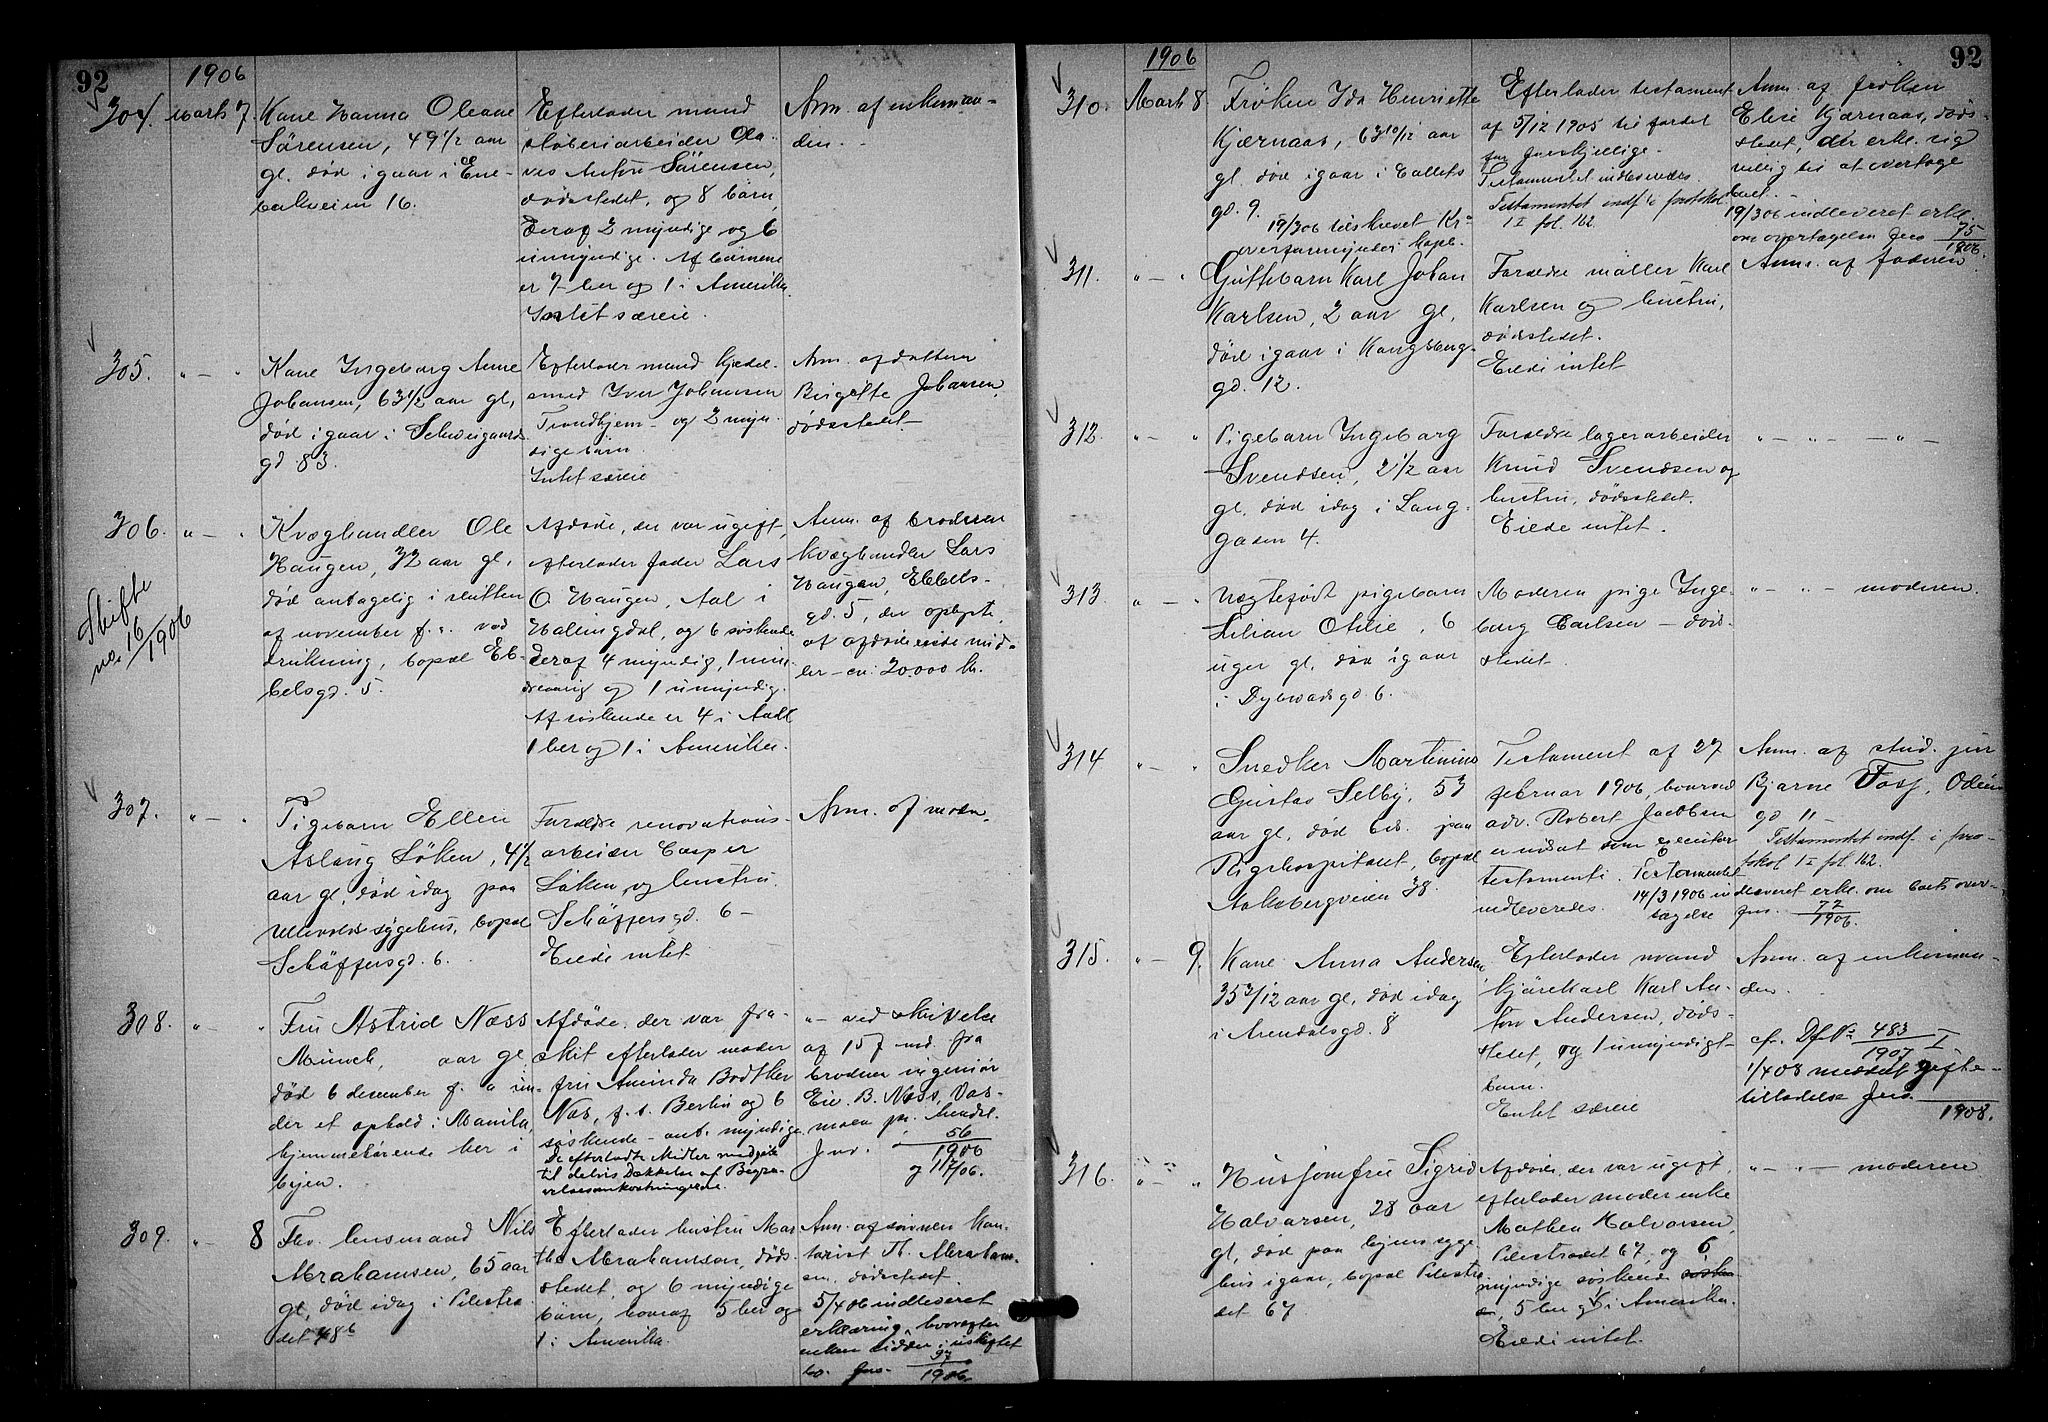 92
1906
304. Marts 7.
Kone Hanna Oleane
Sørensen, 49 1/2 aar
gl. død igaar i Ene-
bakveien 16.
Efterlader mand
støberiarbeider Ola-
ves Anton Sørensen,
dødsstedet, og 8 børn,
deraf 2 myndige og 6
umyndige. Af børnene
er 7 her og 1 i Amerika.
Intet særeie.
Anm. af enkeman-
den.
305. " — "
Kone Ingeborg Anne
Johansen, 63 1/2 aar gl,
død igaar i Schweigaards
gd. 83.
Efterlader mand kjedel-
smed Iver Johansen
Trondhjem - og 2 myn-
dige børn.
Intet særeie
Anm. af datteren
Birgitte Johansen,
dødsstedet
306. " — "
Skifte
no. 16/1906
Kvæghandler Ole
Haugen, 32 aar gl,
død antagelig i slutten
af november f. a. ved
drukning, bopæl Eb-
belsgd. 5.
Afdøde, der var ugift,
efterlader fader Lars
O. Haugen, Aal i
Hallingdal, og 6 søskende
deraf 4 myndig, 1 min-
dreaarig og 1 umyndig.
Af søskende er 4 i Aal
1 her og 1 i Amerika.
Anm. af broderen
kvæghandler Lars
Haugen, Ebbels-
gd. 5, der oplyste,
at afdøde eiede mid-
ler - ca. 20.000 kr.
307. " — "
Pigebarn Ellen
Aslaug Løken, 4 1/2
aar gl, død idag paa
Ullevold sygehus, bopæl
Schäffersgd. 6.
Forældre renovations-
arbeider Casper
Løken og hustru.
Schäffersgd. 6 -
Eiede intet
Anm. af moren.
308. " — "
Fru Astrid Næss
Munch, aar gl
død 6 december f. a. un-
der et ophold i Manila,
hjemmehørende her i
byen.
Afdøde, der var fra-
skilt efterlader moder
fru Aminda Bødtker
Næs, f. t. Berlin og 6
søskende - ant. myndige
De efterladte Midler medgik
til delvis Dækkelse af Begra-
velsesomkostningerne.
" — ved skrivelse
af 15 f. md. fra
broderen ingeniør
Eie. B. Næss, Vos-
moen pr. Arendal.
Jno. 56/1906
309. " — 8
Fhv. lensmand Nils
Abrahamsen, 65 aar
gl, død idag i Pilestræ
det 48 b
Efterlader hustru Mar
the Abrahamsen, døds-
stedet, og 6 myndige
børn, hvoraf 5 her og
1 i Amerika.
Anm. af sønnen kon-
torist Th. Abraham-
sen, dødsstedet.
5/4 06 indleveret
erklæring, hvorefter
enken sidder i uskiftet
bo. Jno. 97/1906
92
1906
310. Marts 8.
Frøken Ida Henriette
Kjærnaas, 63 10/12 aar
gl. død igaar i Calles
gd. 9.
19/3 06 tilskrevet Kr.
overformynderi kopl.
Efterlader testament
af 5/12 1905 til fordel
for forskjellige.
Testamentet indleveredes.
Testamentet indf. i protokol
I fol. 162.
Anm. af frøken
Elise Kjærnaas, døds-
stedet, der erkl. sig
villig til at overtage
boet.
19/3 06 indleveret erkl.
om overtagelse Jno 75/1906
311. " — "
Guttebarn Karl Johan
Karlsen, 2 aar gl,
død igaar i Kongsberg-
gd. 12.
Forældre møller Karl
Karlsen og hustru,
dødsstedet.
Eiede intet
Anm. af faderen
312. " — "
Pigebarn Ingeborg
Svendsen, 2 1/2 aar
gl. død idag i Lang-
gaden 4.
Forældre lagerarbeider
Knud Svendsen og
hustru, dødsstedet.
Eiede intet.
" — " — " —
313. " — "
Uægtefødt pigebarn
Lilian Otilie, 6
uger gl, død igaar
i Dybwadsgd. 6.
Moderen pige Inge-
borg Carlsen - døds-
stedet.
" — " — moderen.
314 " — "
Snedker Martinius
Gustav Selby, 53
aar gl, død paa
Rigshospitalet, bopæl
Aakebergveien 38.
Testament af 27
februar 1906, hvorved
adv. Robert Jacobsen
er indsat som executor
testamenti. Testamentet
indleveredes.
14/3 1906 indleveret erkl. om boets over-
tagelse Jno. 72/1906.
Anm. af stud. jur
Bjarne Foss, Odins
gd 11 -
Testamentet indf. i pro-
tokol I fol. 162.
315. " — 9.
Kone Anna Andersen
35 3/12 aar gl, død idag
i Arendalsgd. 8
Efterlader mand
kjørekarl Karl An-
ton Andersen, døds-
stedet, og 1 umyndigt
barn.
Intet særeie
Anm. af enkeman-
den.
cfr. Df No 483/1907 I
1/4 08 meddelt gifte-
tilladelse Jno. /1908.
316. " — "
Husjomfru Sigrid
Halvorsen, 28 aar
gl, død paa byens syge-
hus igaar, bopæl Pilestræ
det 67
Afdøde, der var ugift,
efterlader moder enke
Mathea Halvorsen,
Pilestrædet 67, og 6
myndige søskende
5 her og 1 i Amerika.
Eiede intet.
" — " — moderen